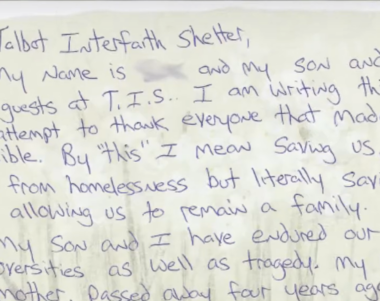 Talbot Interfaith Shelter,
My Name is and my son and
guests at T.I.S.. I am writing th
attempt to thank everyone that mad
ible. By "this" I mean Saving us
from homelessness but literally Sav
allowing us to remain a family.
My Son and I have endured our
versities as well as tragedy. My
mother, passed away four years ago